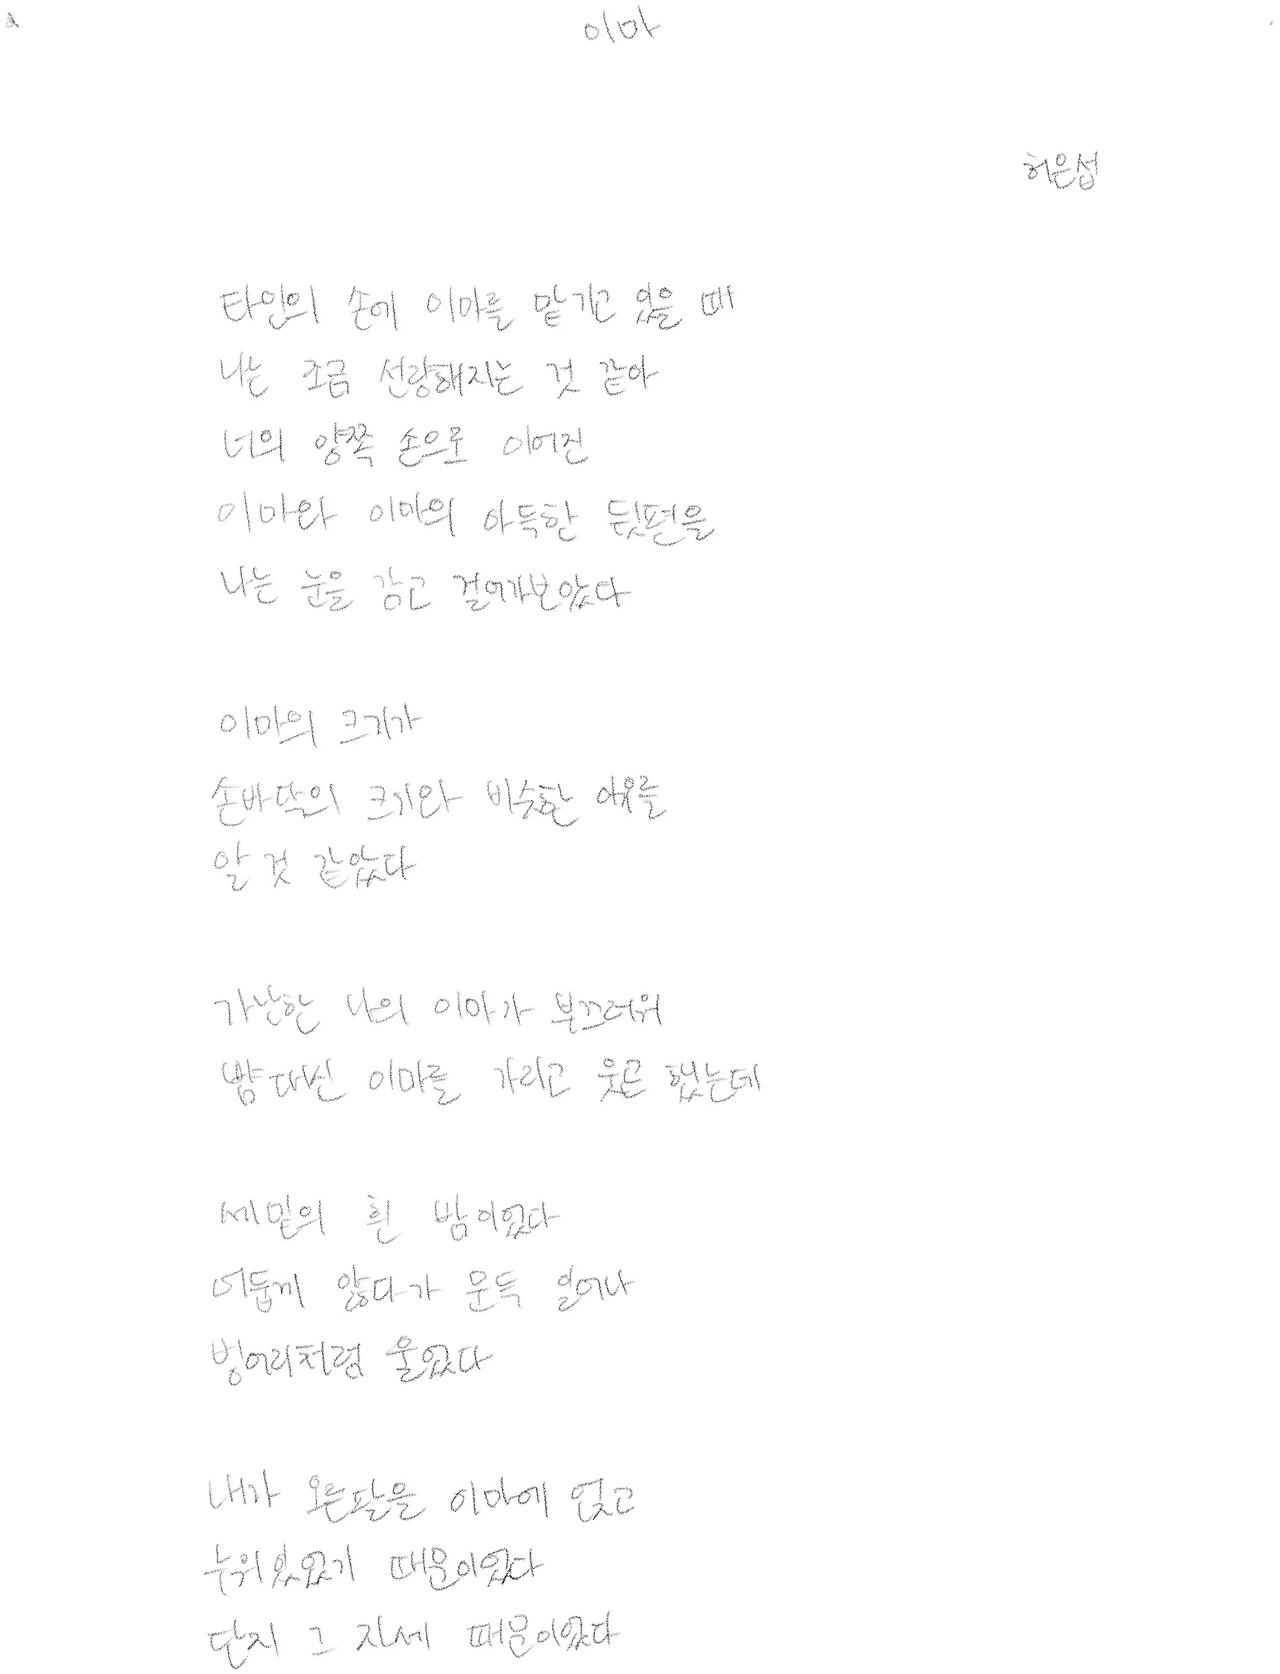 이마
허은섭
타인의 손에 이마를 맡기고 있을 때
나는 조금 선량해지는 것 같아
너의 양쪽 손으로 이어진
이마와 이마의 아득한 뒷편을
나는 눈을 감고 걸어가보았다
이마의 크기가
손바닥의 크기와 비슷한 이유를
알 것 같았다
가난한 나의 이마가 부끄러워
뺨 대신 이마를 가리고 웃곤 했는데
세밑의 흰 밤이었다
어둡게 앓다가 문득 일어나
벙어리처럼 울었다
내가 오른팔을 이마에 얹고
누워있었기 때문이었다
단지 그 자세 때문이었다